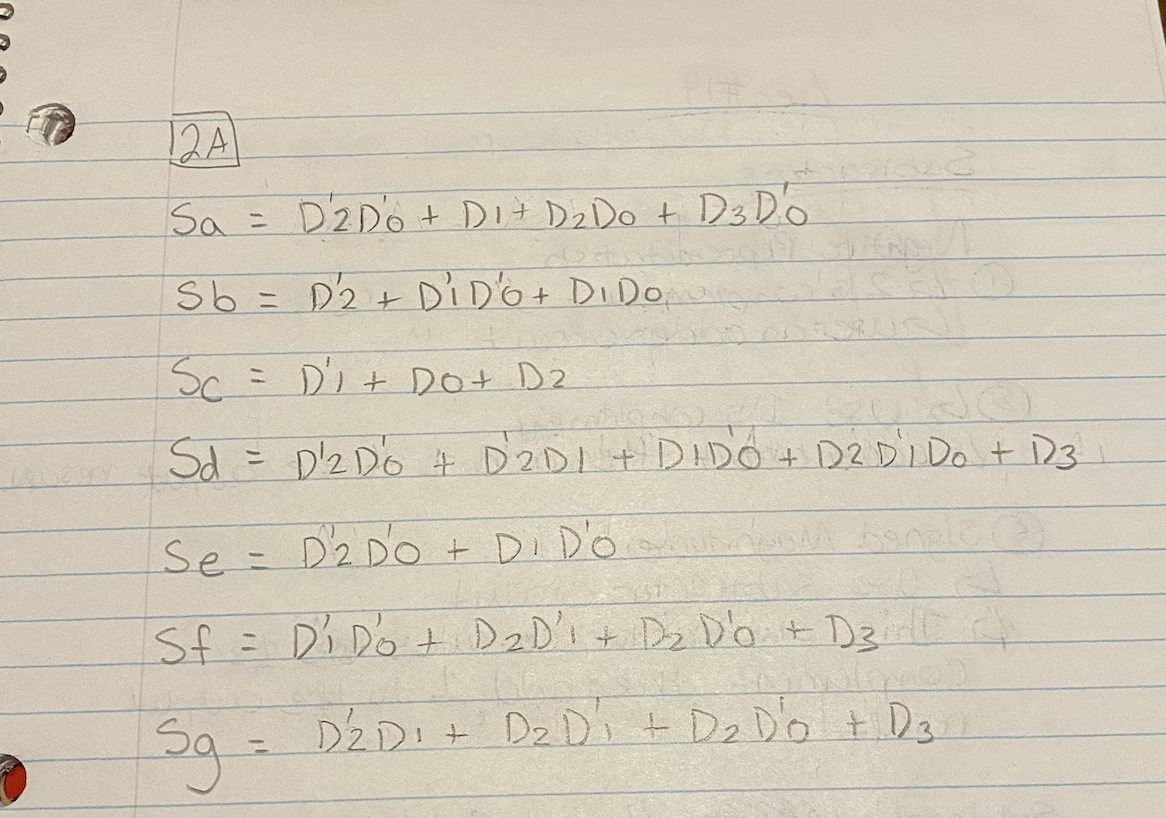 2A
Sa = D'2D'0 + D1 + D2D0 + D3D'0
Sb = D'2 + D'1D'0 + D1D0
Sc = D'1 + D0 + D2
Sd = D'2D'0 + D'2D1 + D1D'0 + D2D'1D0 + D3
Se = D'2D'0 + D1D'0
Sf = D'1D'0 + D2D'1 + D2D'0 + D3
Sg = D'2D1 + D2D'1 + D2D'0 + D3